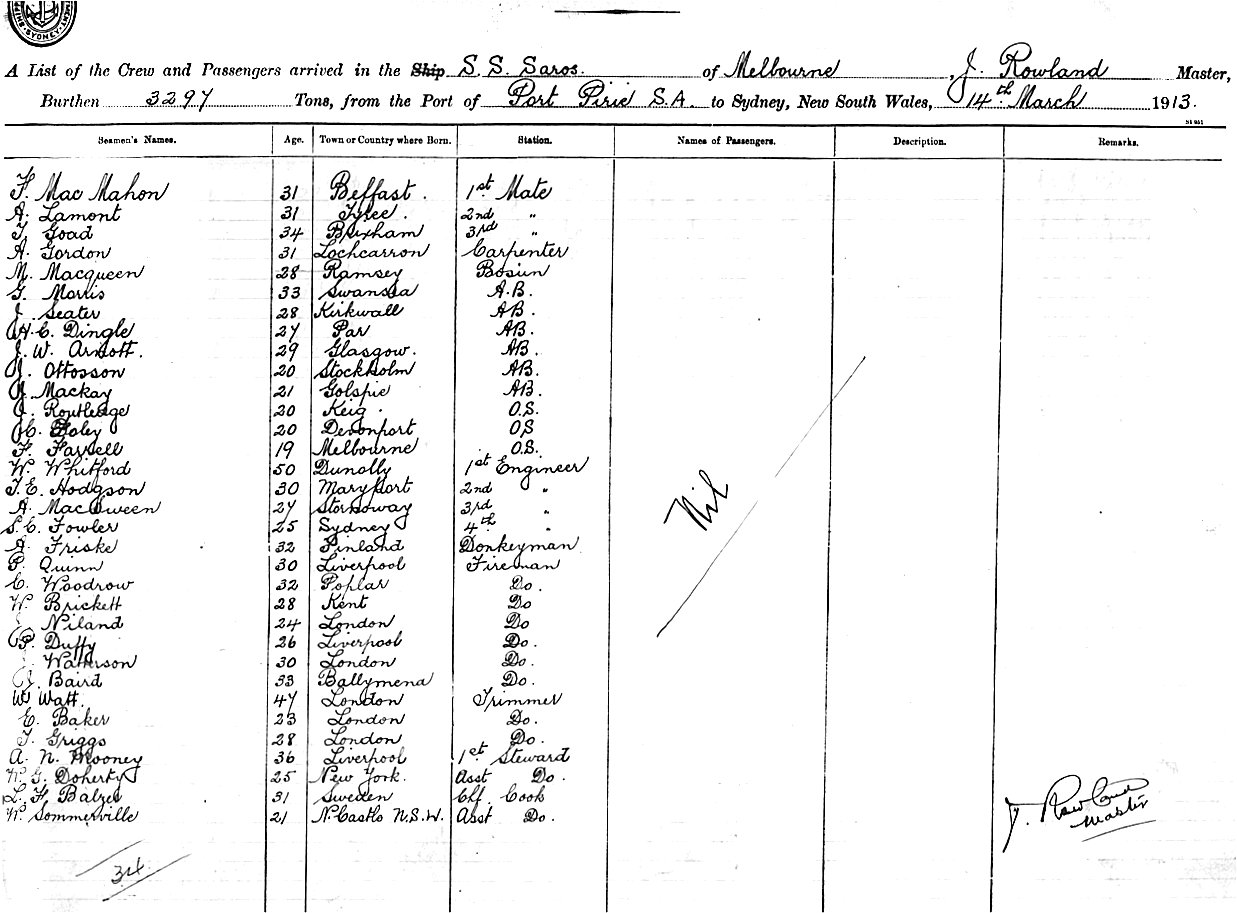 SYDNEY
A List of the Crew and Passengers arrived in the Ship S. S. Saros. of Melbourne, J. Rowland Master,
Burthen 3297 Tons, from the Port of Port Pirie S.A. to Sydney, New South Wales, 14th March 1913.
Seamen's Names. Age. Town or Country where Born. Station. Names of Passengers. Description. Remarks.
F. Mac Mahon 31 Belfast. 1st Mate
A. Lamont 31 Tyree. 2nd "
T. Goad 34 Brixham 3rd "
A. Gordon 31 Lochcarron Carpenter
M. Macqueen 28 Ramsey Bosun
G. Morris 33 Swansea A.B.
J. Seater 28 Kirkwall AB.
W. C. Dingle 27 Par AB.
J. W. Arnott. 29 Glasgow. AB.
Ottosson 20 Stockholm AB.
Mackay 21 Golspie AB.
Routledge 20 Keig. O.S.
Foley 20 Devonport O.S
F. Farrell 19 Melbourne O.S.
W. Whitford 50 Dunolly 1st Engineer
T. E. Hodgson 30 Maryport 2nd "
A. MacSween 27 Stornoway 3rd "
S. C. Fowler 25 Sydney 4th "
A. Friske 32 Finland Donkeyman
P. Quinn 30 Liverpool Fireman
C. Woodrow 32 Poplar Do.
W. Brickett 28 Kent Do
Niland 24 London Do
P. Duffy 26 Liverpool Do.
Watterson 30 London Do.
Baird 33 Ballymena Do.
W Watt. 47 London Trimmer
E. Baker 23 London Do.
T. Griggs 28 London Do.
A. N. Mooney 36 Liverpool 1st Steward
W. G. Doherty 25 New York. Asst Do.
L. F. Balzer 31 Sweden Chf Cook
W. Sommerville 21 N.Castle N.S.W. Asst Do.
Nil
J. Rowland
Master
34